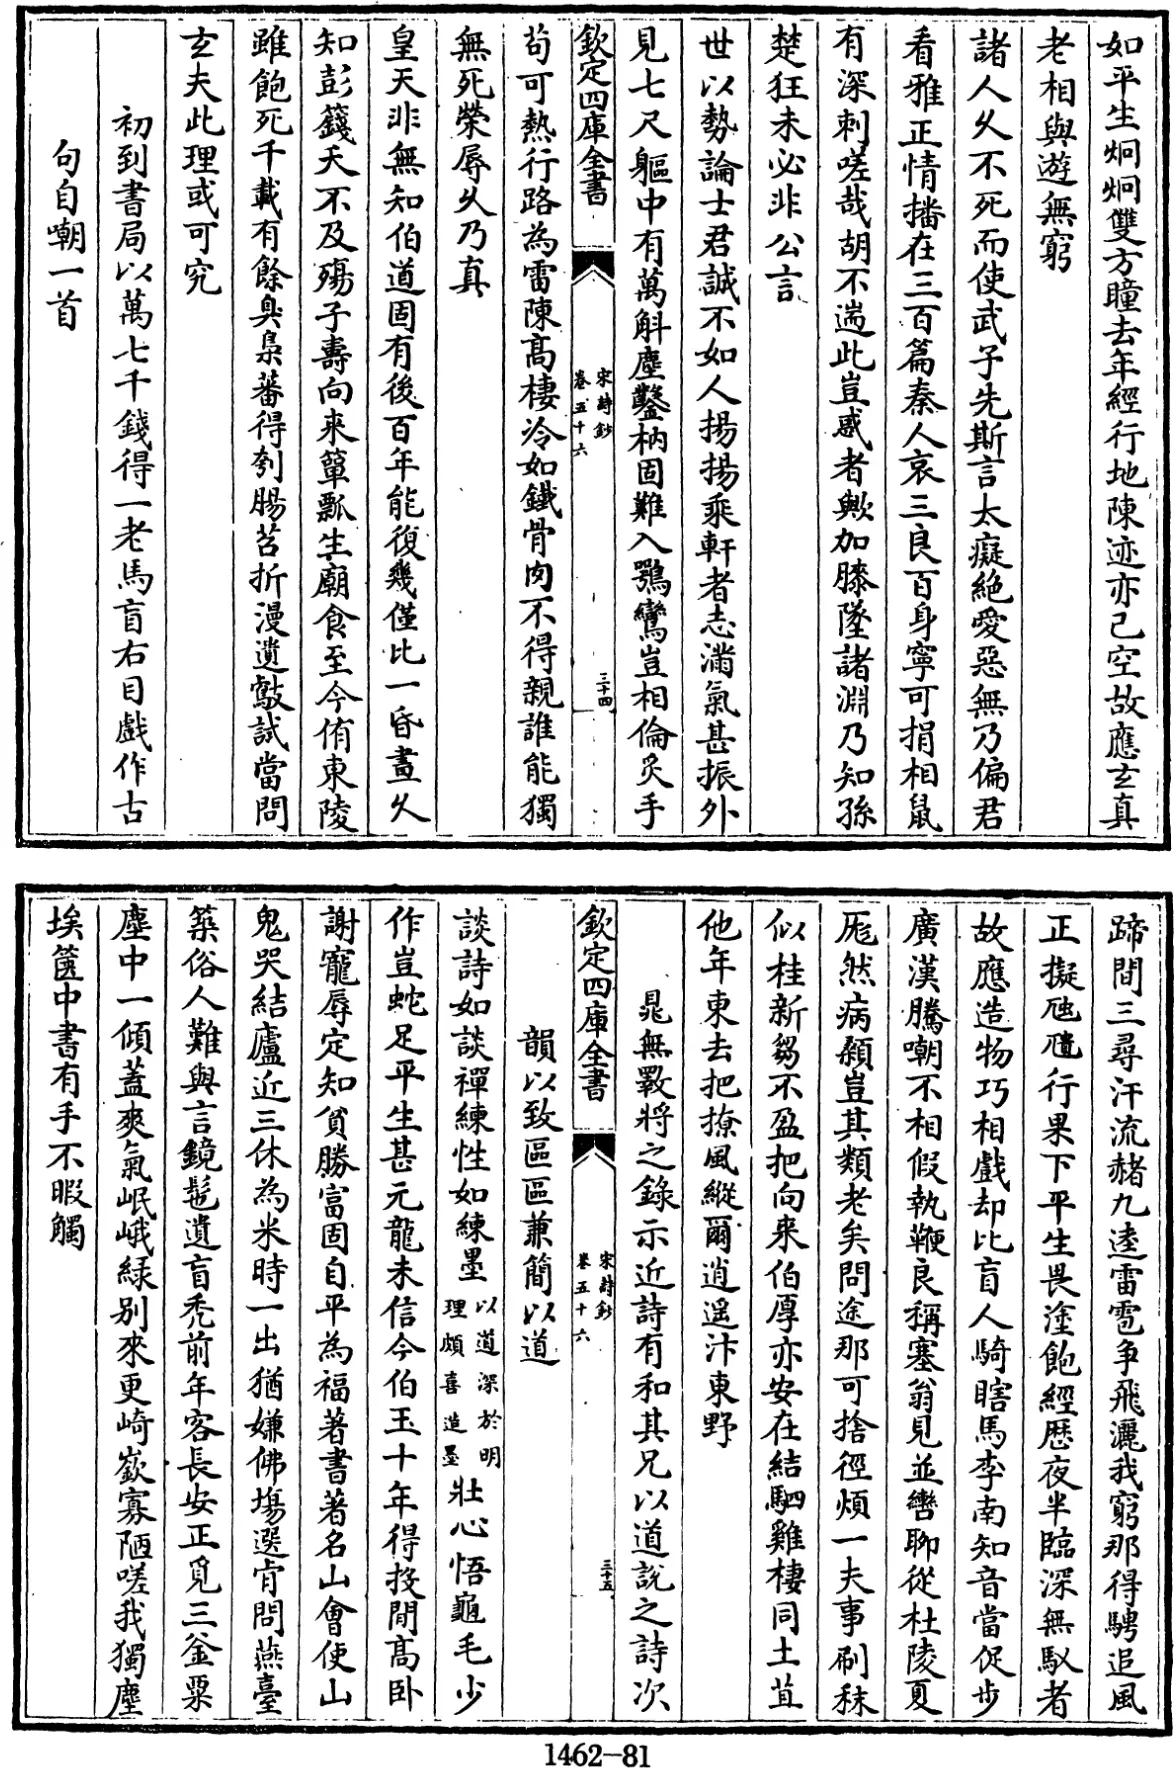 如平生炯炯雙方瞳去年經行地陳迹亦已空故應玄真
老相與遊無窮
諸人久不死而使武子先斯言太癡絶愛惡無乃偏君
看雅正情播在三百篇秦人哀三良百身寧可捐相鼠
有深刺嗟哉胡不遄此豈惑者歟加膝墜諸淵乃知孫
楚狂未必非公言
世以勢論士君誠不如人揚揚乘軒者志滿氣甚振外
見七尺軀中有萬斛塵鑿枘固難入鶚鸞豈相倫炙手
欽定四庫全書
宋詩鈔
卷五十六
三十四
茍可熱行路為雷陳高棲冷如鐵骨肉不得親誰能獨
無死榮辱久乃真
皇天非無知伯道固有後百年能復幾僅比一昏晝久
知彭籛夭不及殤子壽向來簞瓢生廟食至今侑東陵
雖飽死千載有餘臭梟蕃得刳腸苕折漫遺鷇試當問
玄夫此理或可究
初到書局以萬七千錢得一老馬盲右目戲作古
句自嘲一首
蹄間三尋汗流赭九逵雷雹爭飛灑我窮那得騁追風
正擬虺隤行果下平生畏塗飽經歷夜半臨深無馭者
故應造物巧相戲却比盲人騎瞎馬李南知音當促步
廣漢騰嘲不相假執鞭良稱塞翁見並轡聊從杜陵夏
尨然病顙豈其類老矣問途那可捨徑煩一夫事刷秣
似桂新芻不盈把向來伯厚亦安在結駟雞棲同土苴
他年東去把撩風縱爾逍遥汴東野
晁無斁將之錄示近詩有和其兄以道說之詩次
欽定四庫全書
宋詩鈔
卷五十六
三十五
韻以致區區兼簡以道
談詩如談禪練性如練墨以道深於明理頗喜造墨壯心悟龜毛少
作豈蛇足平生甚元龍未信今伯玉十年得投閒高卧
謝寵辱定知貧勝富固自平為福著書著名山會使山
鬼哭結廬近三休為米時一出猶嫌佛場選肯問燕臺
築俗人難與言鏡髢遺盲禿前年客長安正覓三釜粟
塵中一傾蓋爽氣岷峨綠別來更崎嶔寡陋嗟我獨塵
埃篋中書有手不暇觸
1462-81